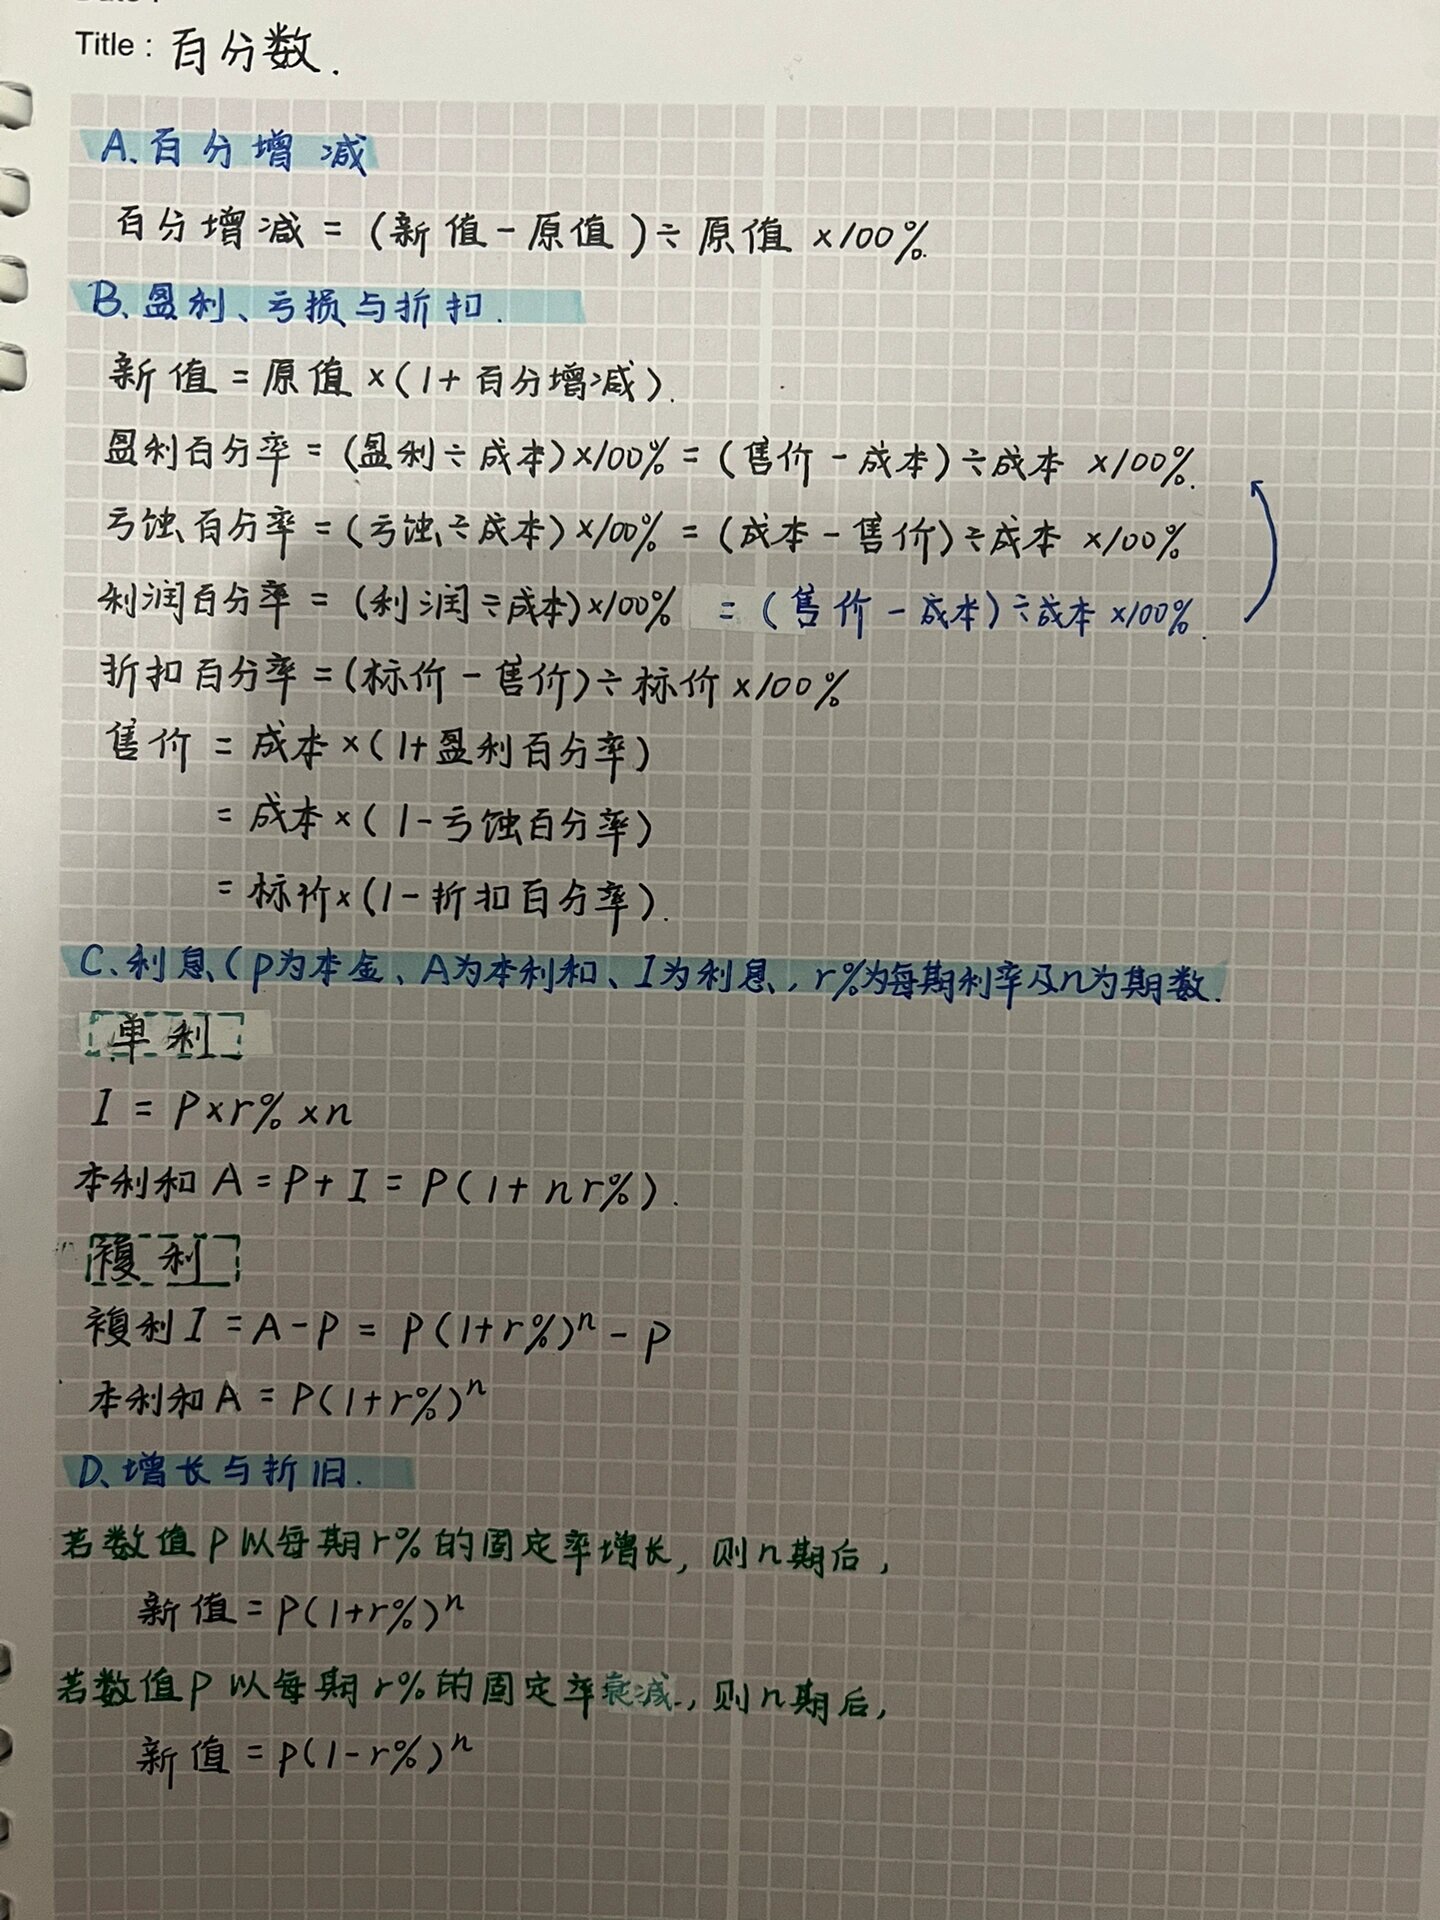 Title : 百分数.
A、百分增减
百分增减 = (新值 - 原值) ÷ 原值 ×100%.
B、盈利、亏损与折扣.
新值 = 原值 ×(1+ 百分增减).
盈利百分率 = (盈利÷成本)×100% = (售价 - 成本)÷成本 ×100%.
亏蚀百分率 = (亏蚀÷成本)×100% = (成本 - 售价)÷成本 ×100%
利润百分率 = (利润÷成本)×100% = (售价 - 成本)÷成本 ×100%.
折扣百分率 = (标价 - 售价)÷标价 ×100%
售价 = 成本 ×(1+盈利百分率)
= 成本 ×(1-亏蚀百分率)
= 标价×(1-折扣百分率).
C、利息(P为本金、A为本利和、I为利息, r%为每期利率及n为期数.
单利
I = P×r%×n
本利和 A = P+ I = P(1+ nr%).
複利
複利 I = A-P = P(1+r%)ⁿ - P
本利和 A = P(1+r%)ⁿ
D、增长与折旧.
若数值 P 以每期 r% 的固定率增长, 则 n 期后,
新值 = P(1+r%)ⁿ
若数值 P 以每期 r% 的固定率衰减, 则 n 期后,
新值 = P(1-r%)ⁿ